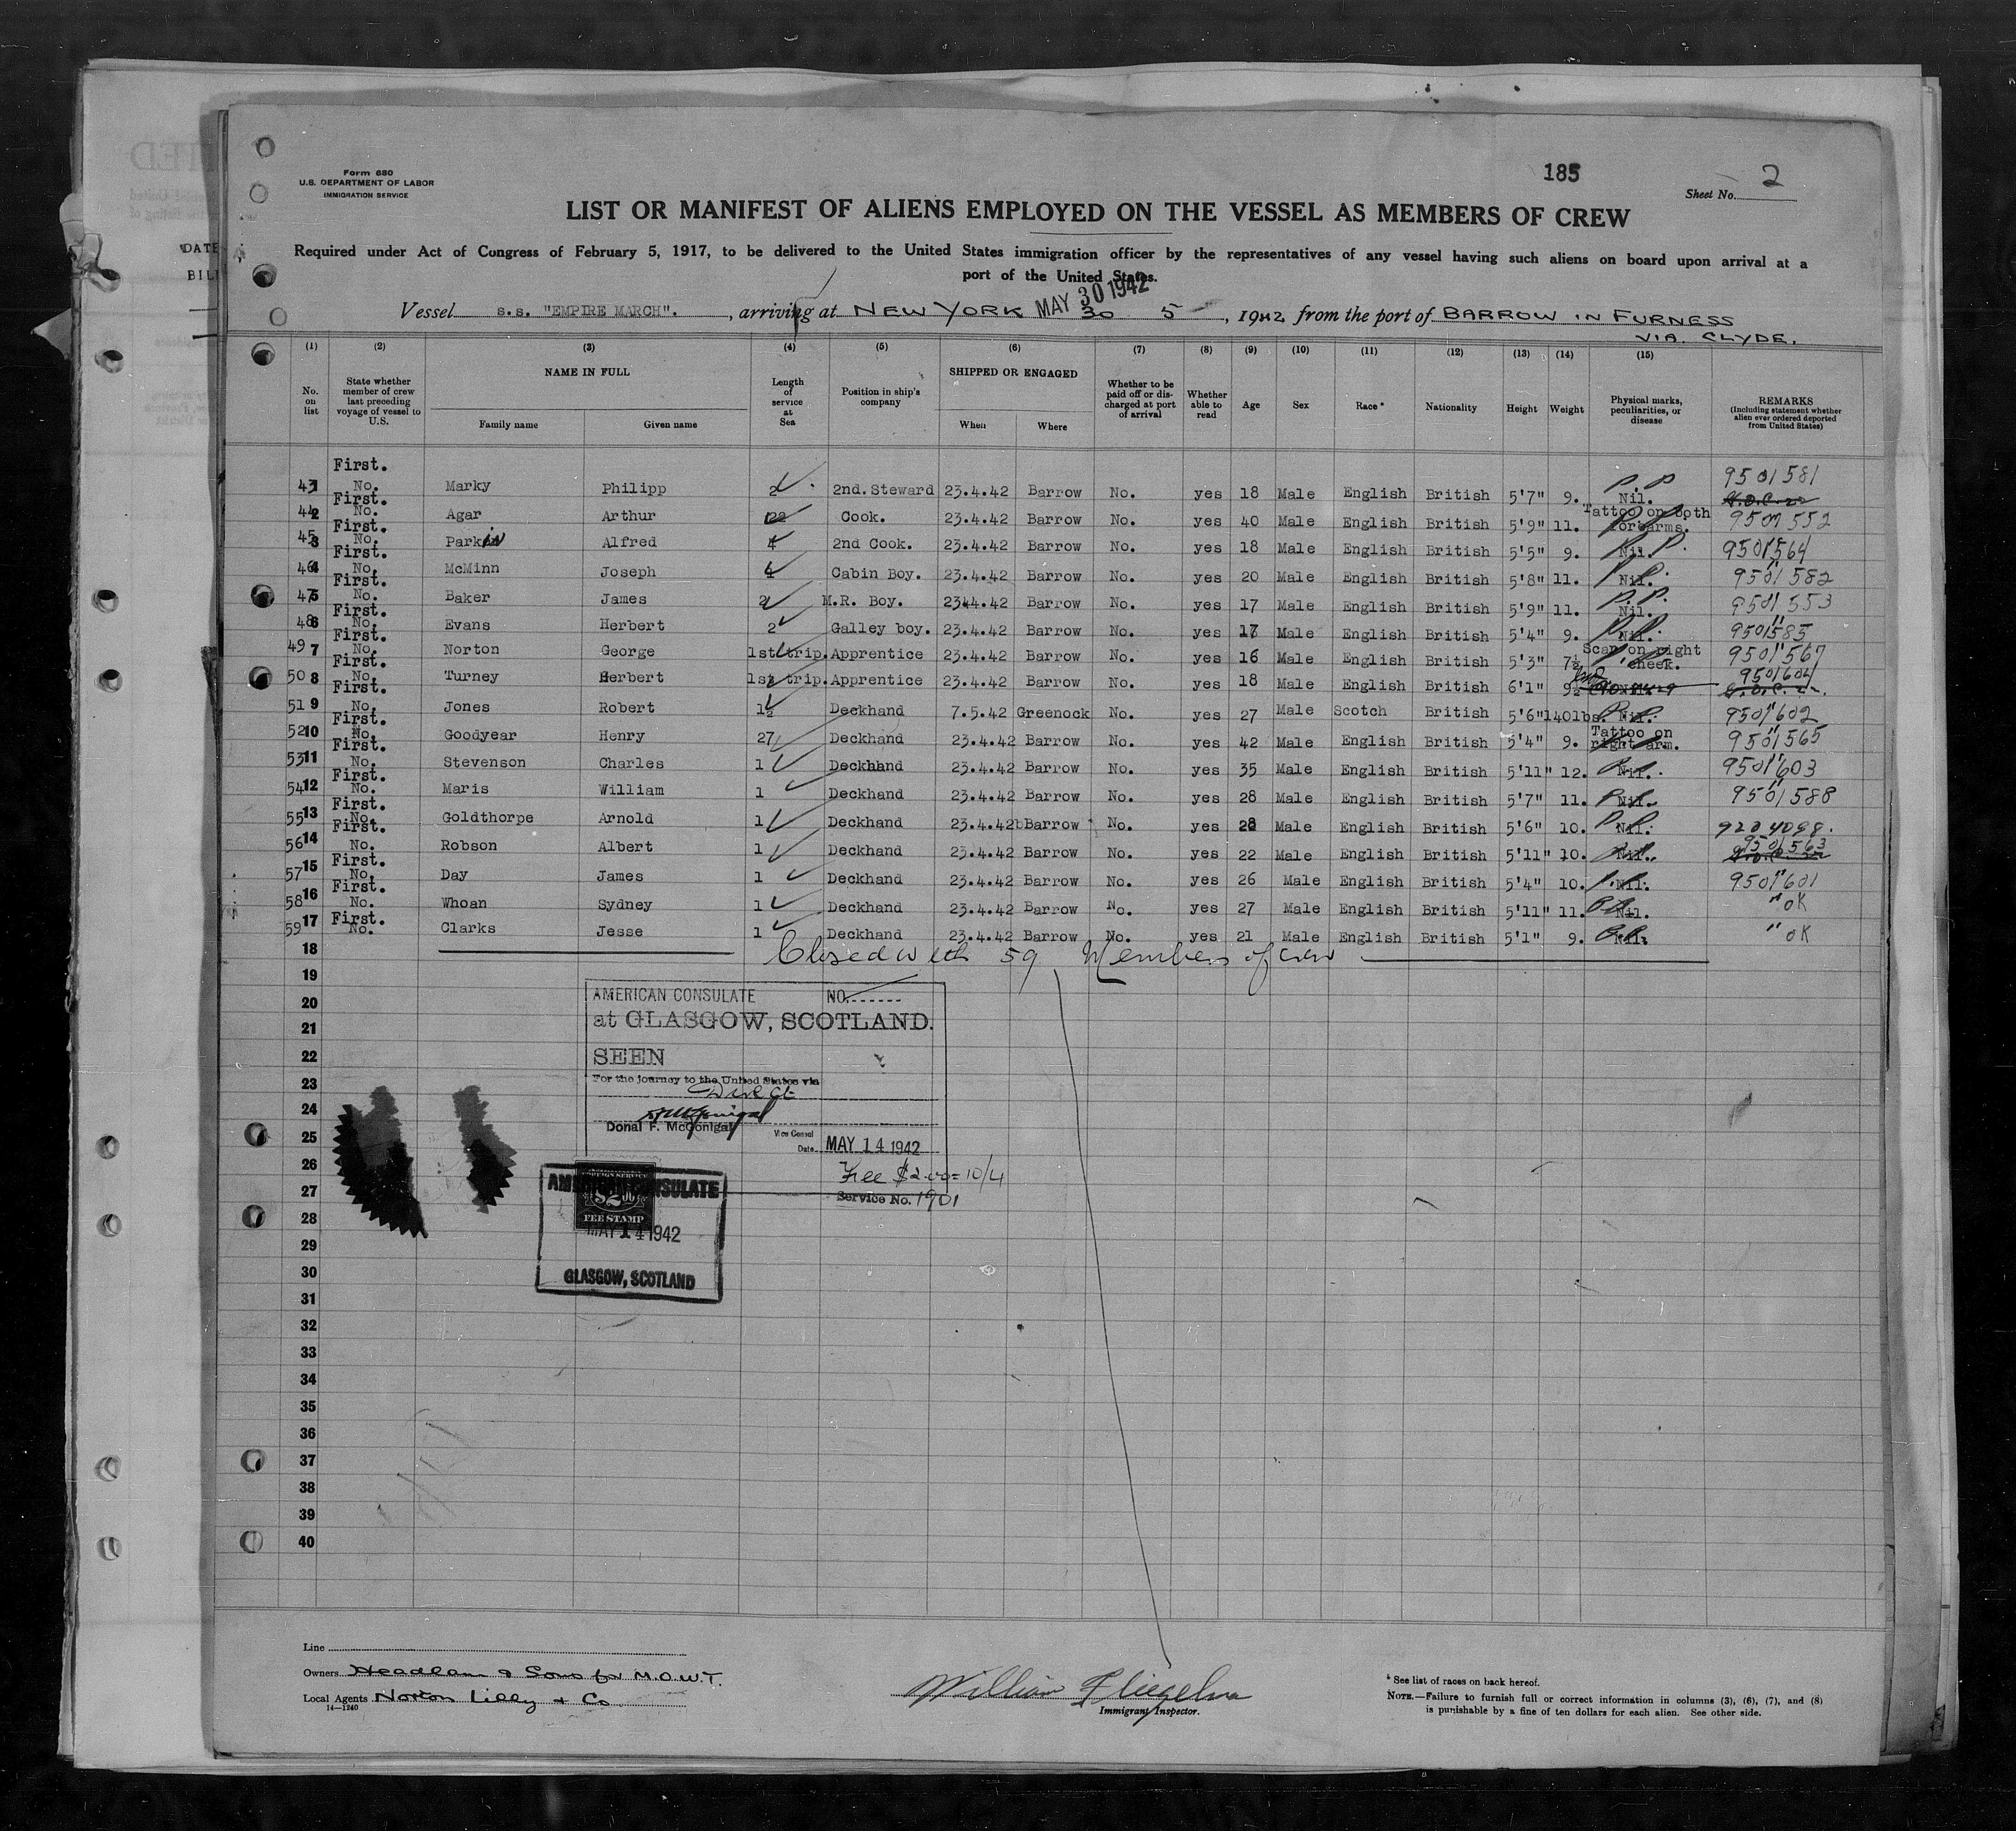 Form 680
U.S. DEPARTMENT OF LABOR
IMMIGRATION SERVICE
185
Sheet No. 2
LIST OR MANIFEST OF ALIENS EMPLOYED ON THE VESSEL AS MEMBERS OF CREW
Required under Act of Congress of February 5, 1917, to be delivered to the United States immigration officer by the representatives of any vessel having such aliens on board upon arrival at a
port of the United States.
MAY 30 1942
Vessel s.s. "EMPIRE MARCH". , arriving at NEW YORK 30 5 , 1942 from the port of BARROW IN FURNESS
VIA. CLYDE.
DATE
BIL
(1) (2) (3) (4) (5) (6) (7) (8) (9) (10) (11) (12) (13) (14) (15)
No. on list
State whether member of crew last preceding voyage of vessel to U.S.
NAME IN FULL
Family name Given name
Length of service at Sea
Position in ship's company
SHIPPED OR ENGAGED
When Where
Whether to be paid off or discharged at port of arrival
Whether able to read
Age Sex Race* Nationality Height Weight
Physical marks, peculiarities, or disease
REMARKS
(Including statement whether alien ever ordered deported from United States)
43 1 First. No. Marky Philipp 2 2nd. Steward 23.4.42 Barrow No. yes 18 Male English British 5'7" 9. P.P Nil. 9501581
44 2 First. No. Agar Arthur 22 Cook. 23.4.42 Barrow No. yes 40 Male English British 5'9" 11. Tattoo on both forearms. 9501552
45 3 First. No. Parkin Alfred 4 2nd Cook. 23.4.42 Barrow No. yes 18 Male English British 5'5" 9. P.P. Nil. 9501564
46 4 First. No. McMinn Joseph 4 Cabin Boy. 23.4.42 Barrow No. yes 20 Male English British 5'8" 11. P.P. Nil. 9501582
47 5 First. No. Baker James 2 M.R. Boy. 2344.42 Barrow No. yes 17 Male English British 5'9" 11. P.P. Nil. 9501553
48 6 First. No. Evans Herbert 2 Galley boy. 23.4.42 Barrow No. yes 17 Male English British 5'4" 9. P.P. Nil. 9501585
49 7 First. No. Norton George 1st trip. Apprentice 23.4.42 Barrow No. yes 16 Male English British 5'3" 7½ Scar on right cheek. 9501567
50 8 First. No. Turney Herbert 1st trip. Apprentice 23.4.42 Barrow No. yes 18 Male English British 6'1" 9½ 9501604
51 9 First. No. Jones Robert 1½ Deckhand 7.5.42 Greenock No. yes 27 Male Scotch British 5'6" 140lbs. P.P. Nil. 9501602
52 10 First. No. Goodyear Henry 27 Deckhand 23.4.42 Barrow No. yes 42 Male English British 5'4" 9. Tattoo on right arm. 9501565
53 11 First. No. Stevenson Charles 1 Deckhand 23.4.42 Barrow No. yes 35 Male English British 5'11" 12. P.P. Nil. 9501603
54 12 First. No. Maris William 1 Deckhand 23.4.42 Barrow No. yes 28 Male English British 5'7" 11. P.P. Nil. 9501588
55 13 First. No. Goldthorpe Arnold 1 Deckhand 23.4.42 Barrow No. yes 28 Male English British 5'6" 10. P.P. Nil. 9204098.
56 14 First. No. Robson Albert 1 Deckhand 23.4.42 Barrow No. yes 22 Male English British 5'11" 10. P.P. Nil. 9501563
57 15 First. No. Day James 1 Deckhand 23.4.42 Barrow No. yes 26 Male English British 5'4" 10. P.P. Nil. 9501601
58 16 First. No. Whoan Sydney 1 Deckhand 23.4.42 Barrow No. yes 27 Male English British 5'11" 11. P.P. Nil. " OK
59 17 First. No. Clarks Jesse 1 Deckhand 23.4.42 Barrow No. yes 21 Male English British 5'1" 9. P.P. Nil. " OK
18 Closed with 59 Members of crew
19
20
21
22
23
24
25
26
27
28
29
30
31
32
33
34
35
36
37
38
39
40
AMERICAN CONSULATE NO.
at GLASGOW, SCOTLAND.
SEEN
For the journey to the United States via
Direct
Donal F. McGonigal
Vice Consul
Date MAY 14 1942
Fee $2.00 = 10/4
Service No. 1901
AMERICAN CONSULATE
FEE STAMP
MAY 14 1942
GLASGOW, SCOTLAND
Line
Owners Headlam & Sons for M.O.W.T.
Local Agents Norton Lilly & Co
14—1240
Immigrant Inspector.
* See list of races on back hereof.
NOTE.—Failure to furnish full or correct information in columns (3), (6), (7), and (8)
is punishable by a fine of ten dollars for each alien. See other side.